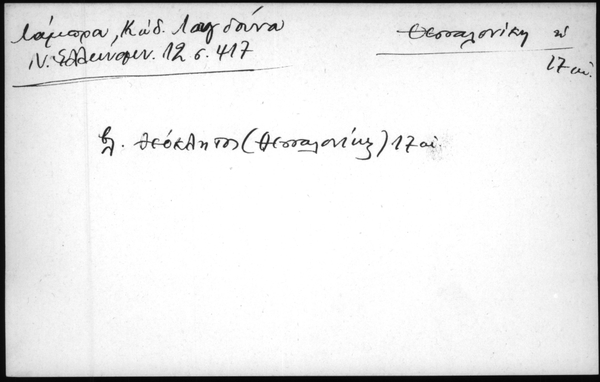 Λάμπρου, Κώδ. Λαυδούνα
Ν. Ελληνομν. 12 σ. 417
Θεσσαλονίκη
17 αι.
βλ. Θεόκλητος (Θεσσαλονίκης) 17 αι.